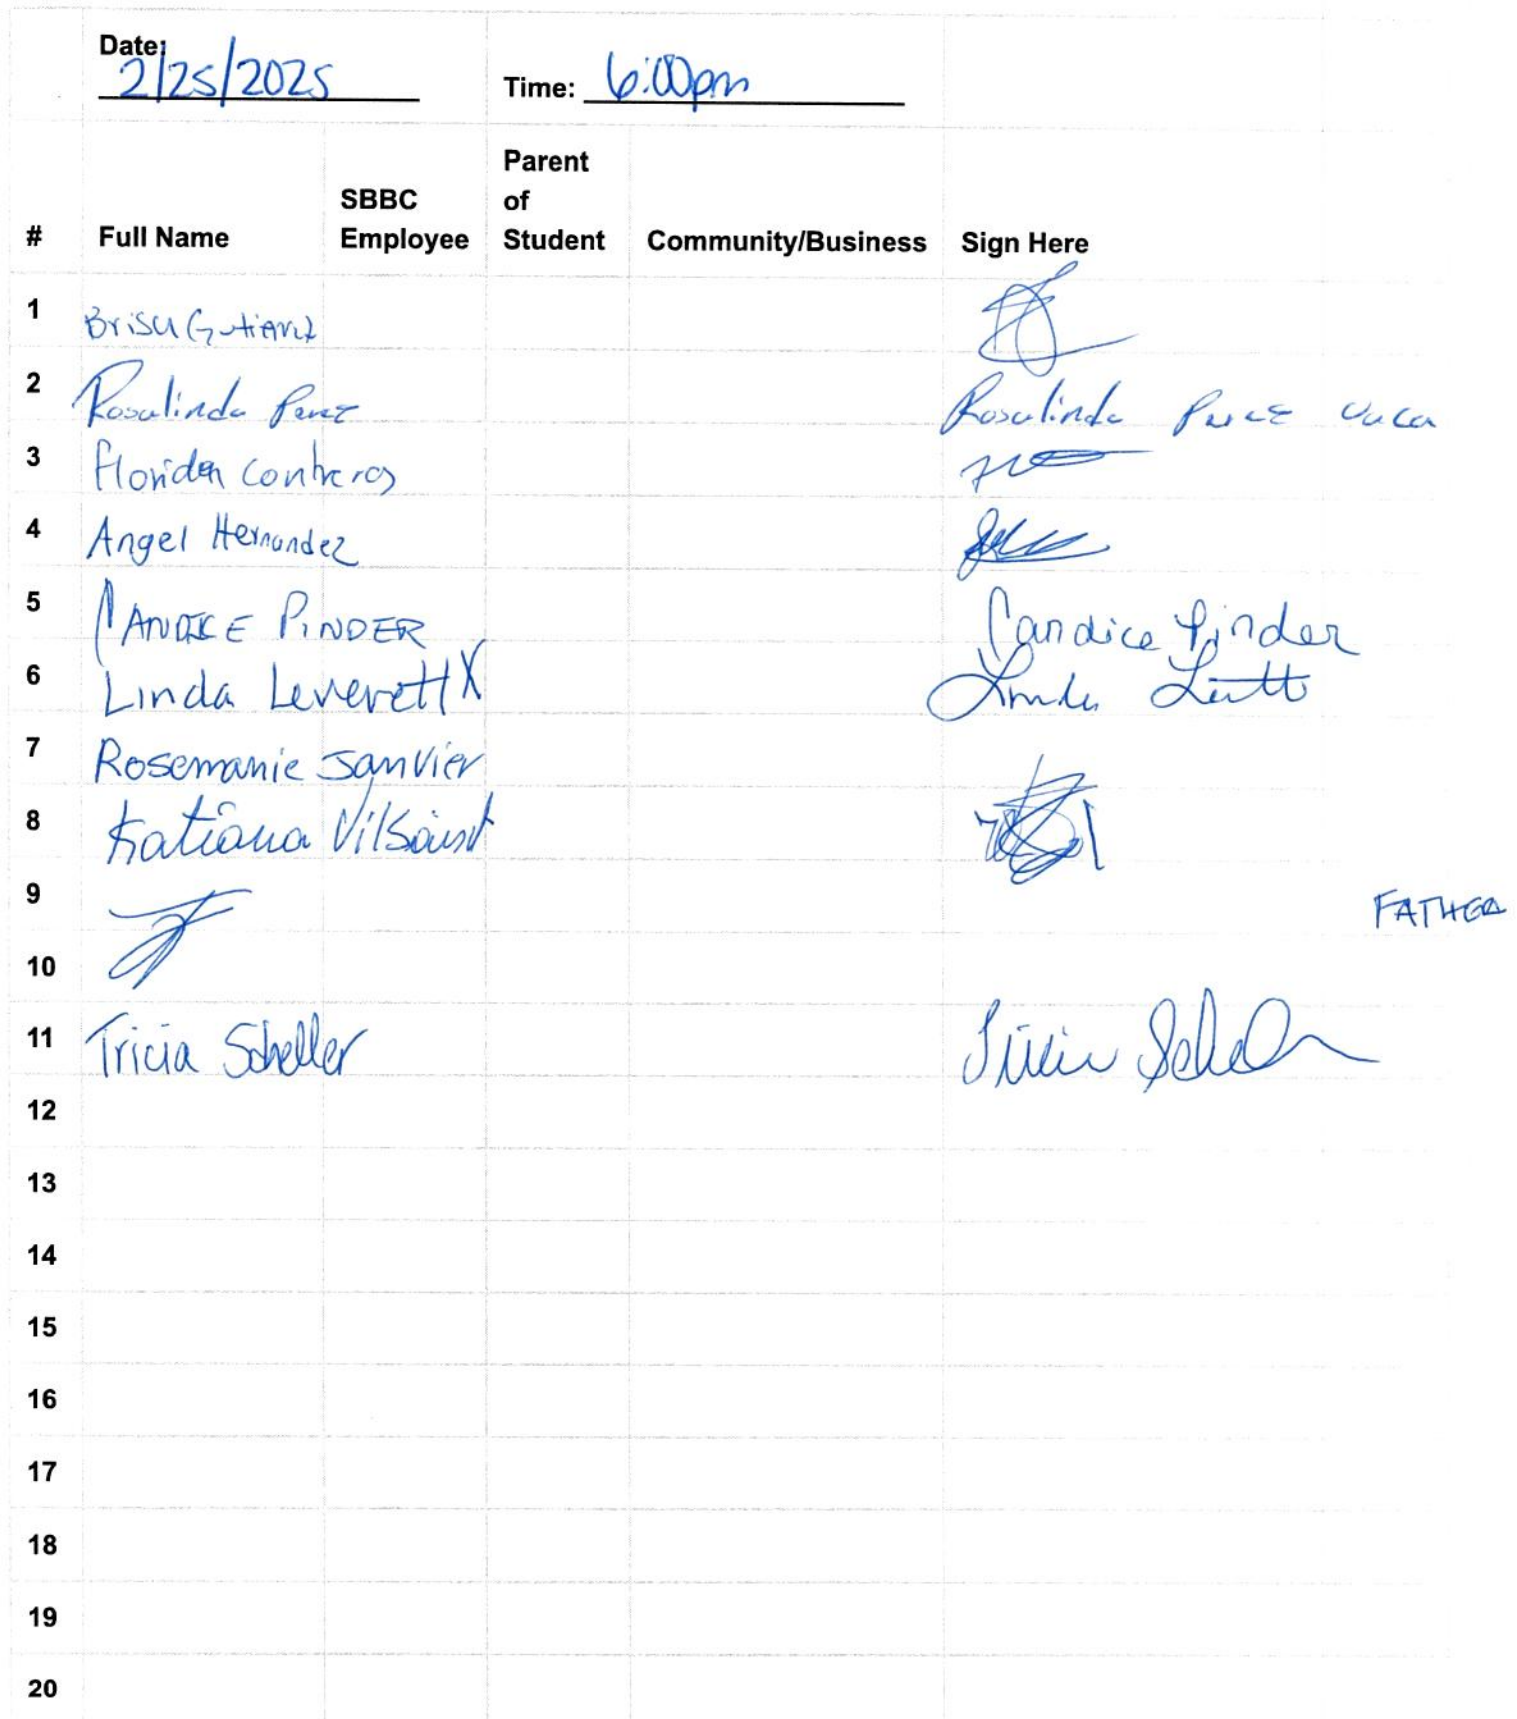 Date: 2/25/2025 Time: 6:00pm
# Full Name SBBC Employee Parent of Student Community/Business Sign Here
1 Brisa
2 Rosalinda Perez Rosalinda Perez Vaca
3 Contreras
4 Angel Hernandez
5 CANDICE PINDER Candice Pinder
6 Linda Leverett X Linda
7 Rosemanie Janvier
8 Katiana Vilsaint
9 FATHER
10
11 Tricia Scheller Tricia
12
13
14
15
16
17
18
19
20